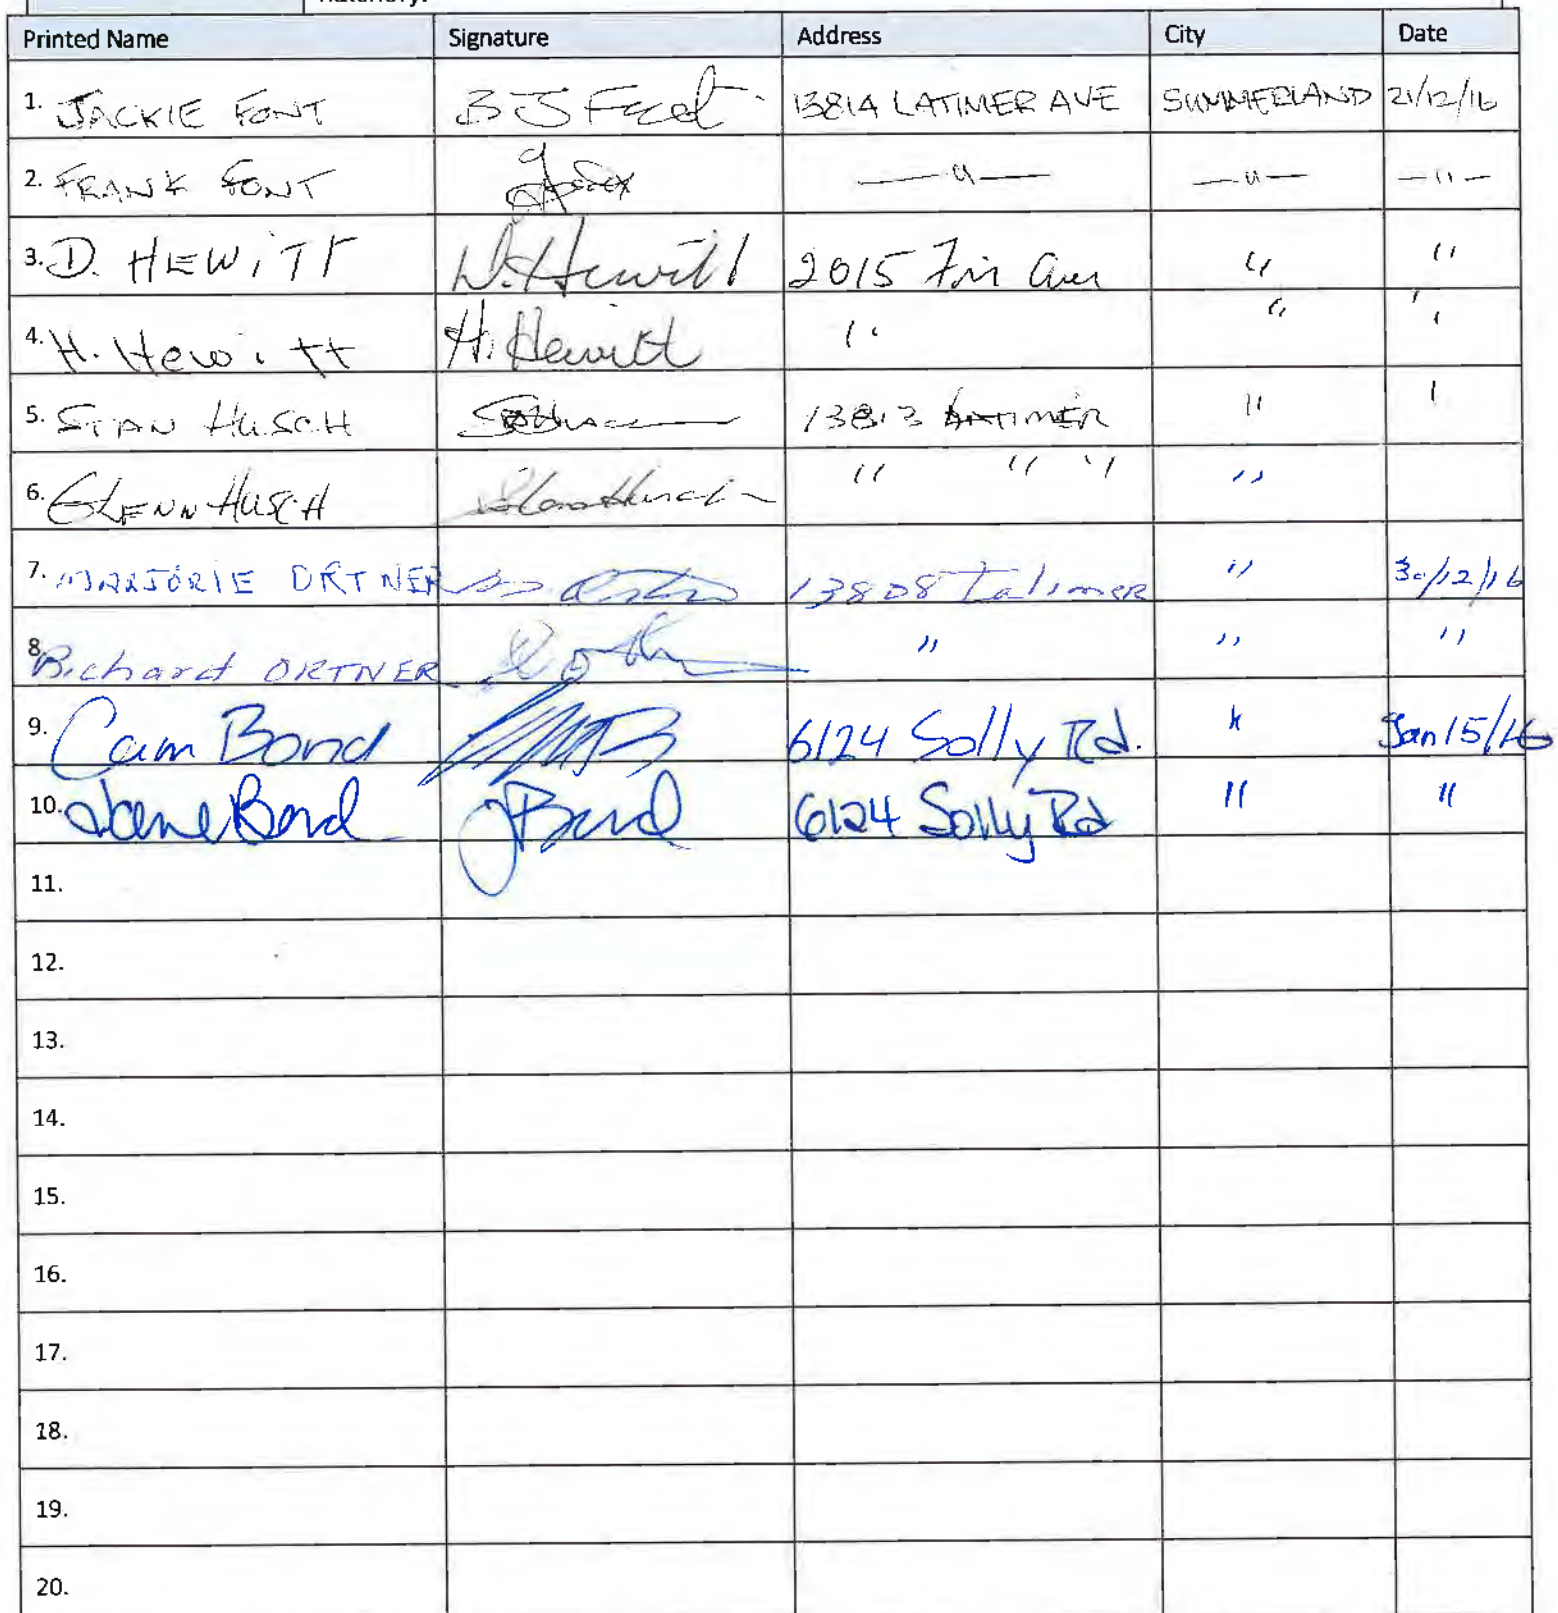 Printed Name Signature Address City Date
1. JACKIE FONT BJ Font 13814 LATIMER AVE SUMMERLAND 21/12/16
2. FRANK FONT —"— —"— —"—
3. D. HEWITT D. Hewitt 2015 Fir Ave " "
4. H. Hewitt H. Hewitt " " "
5. STAN HUSCH 13813 LATIMER " "
6. GLENN HUSCH " " " "
7. MARJORIE ORTNER 13808 Latimer " 30/12/16
8. Richard ORTNER " " "
9. Cam Bond 6124 Solly Rd. " Jan 15/16
10. Jane Bond J Bond 6124 Solly Rd " "
11.
12.
13.
14.
15.
16.
17.
18.
19.
20.